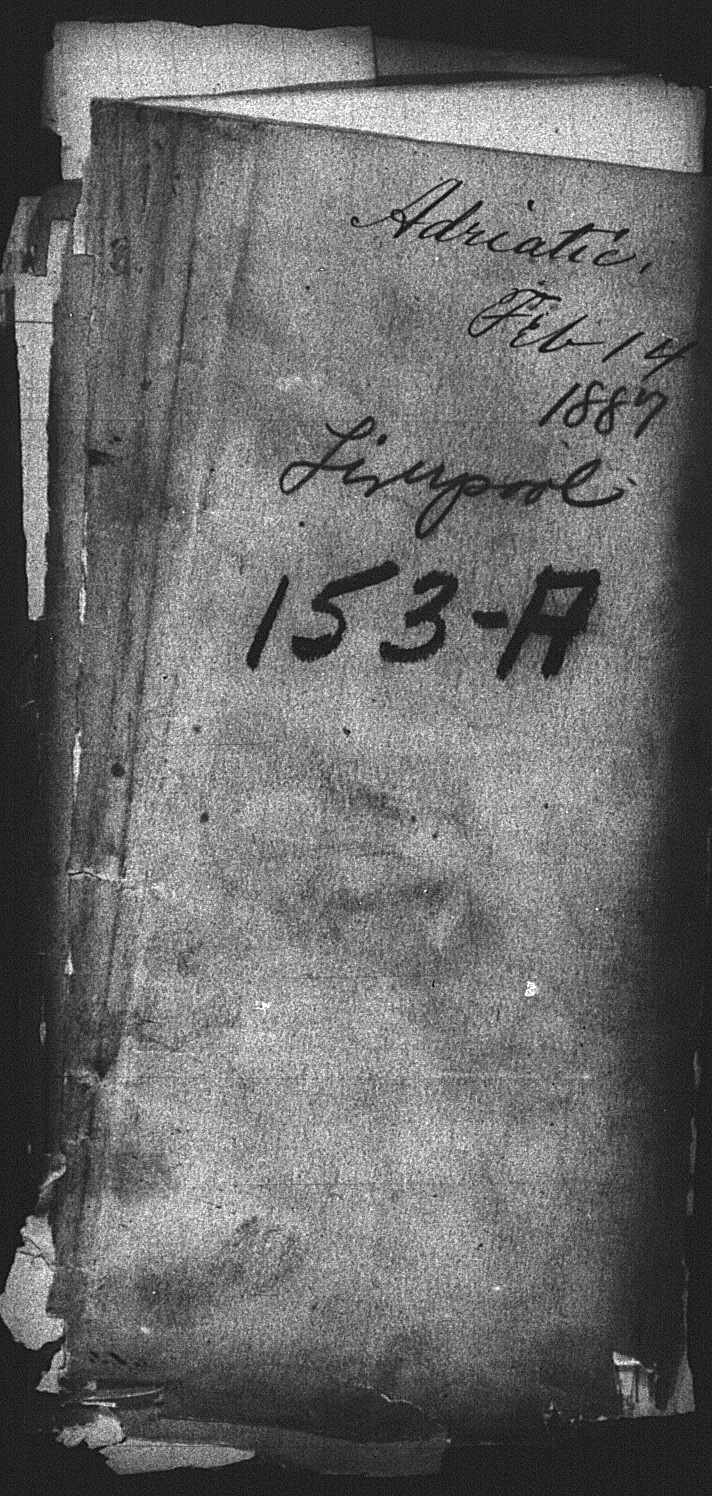 Adriatic.
Feb 14
1887
Liverpool
153-A